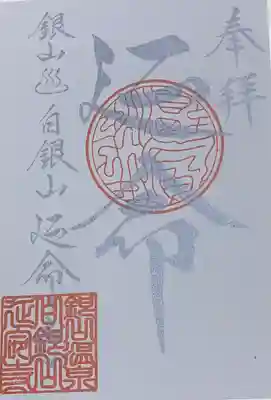 奉拝
延命
銀山巡白銀山延命
銀山温泉
白銀山
延命寺